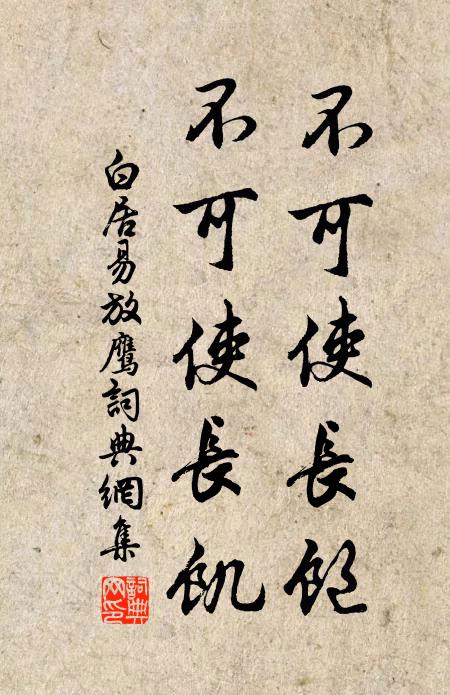 不可使長飽
不可使長飢
白居易放鷹詞典網集
詞典網印